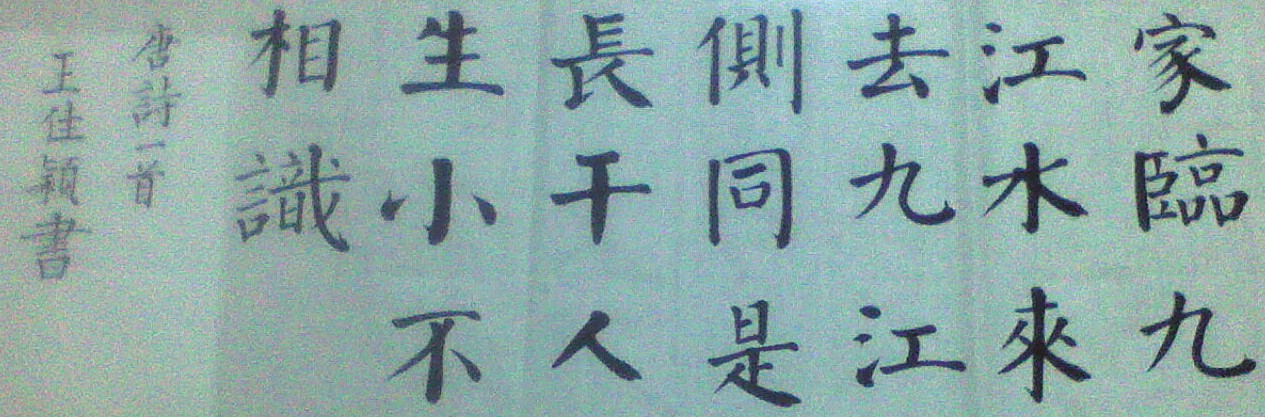 家臨九
江水來
去九江
側同是
長干人
生小不
相識
唐詩一首
王佳穎書